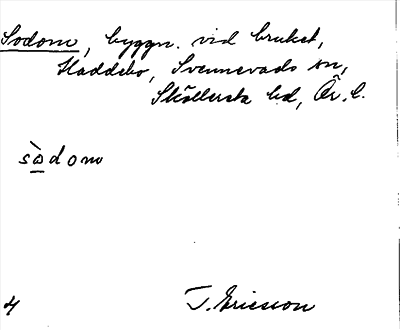 Sodom, byggn. vid bruket,
Haddebo, Svennevads sn,
Sköllersta hd, Ör. l.
sòdom
4
J. Ericsson